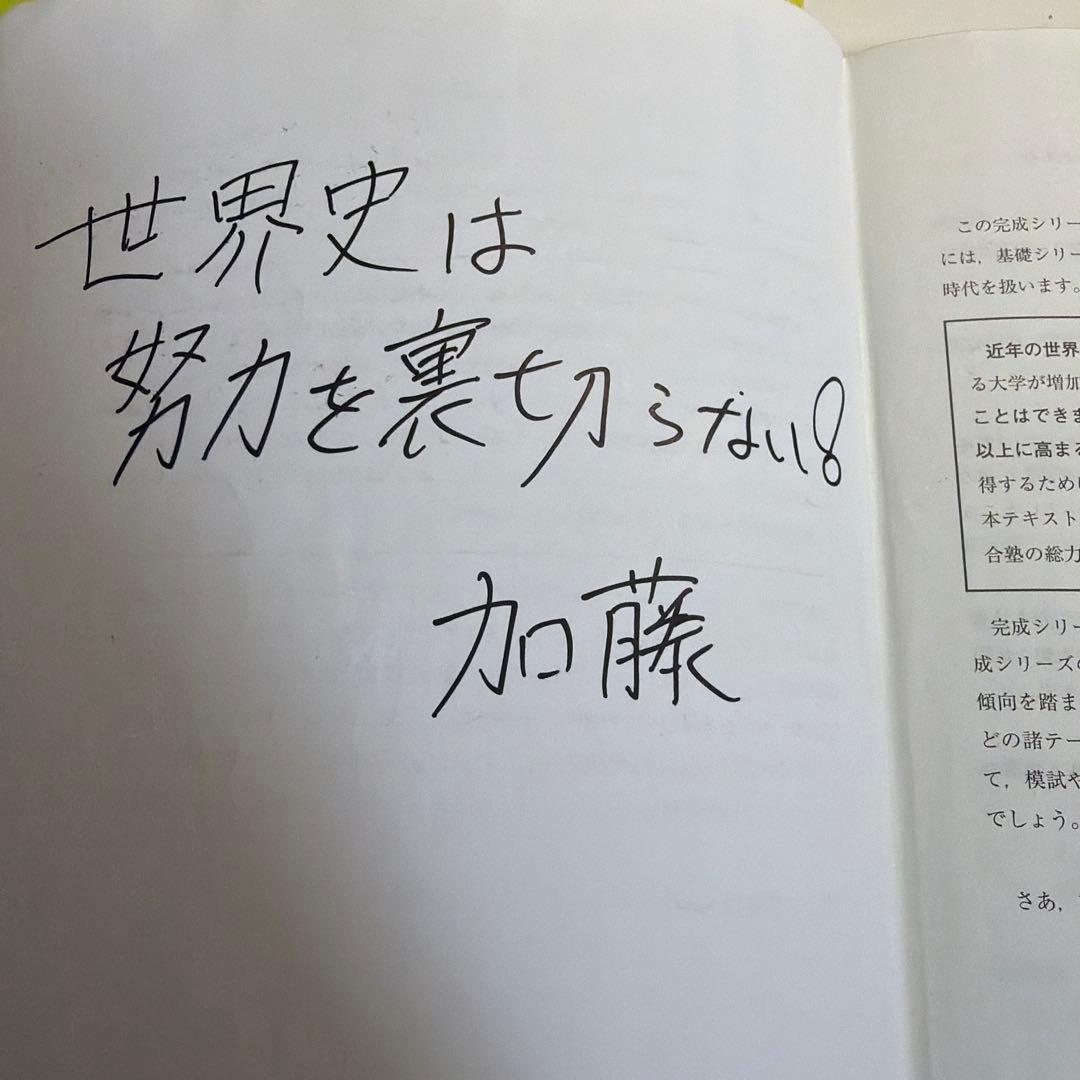 世界史は
努力を裏切らない!
加藤
この完成シリー
には，基礎シリー
時代を扱います。
近年の世界
る大学が増加
ことはできま
以上に高まる
得するため
本テキスト
合塾の総力
完成シリー
成シリーズの
傾向を踏ま
どの諸テー
て，模試や
でしょう。
さあ，